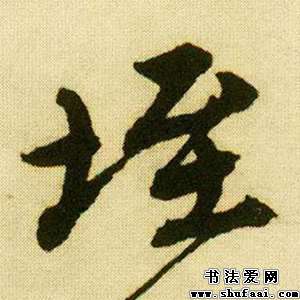 垤
书法爱网
www.shufaai.com